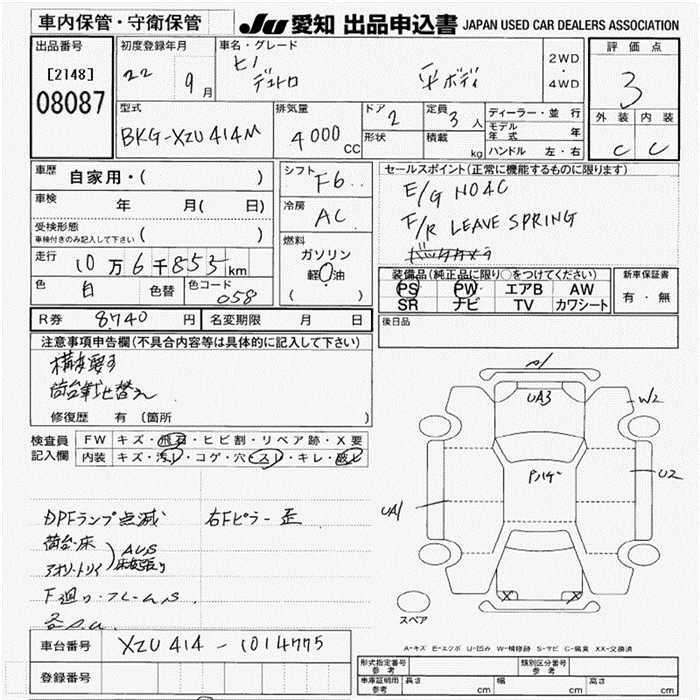 車内保管・守衛保管
JU 愛知 出品申込書 JAPAN USED CAR DEALERS ASSOCIATION
出品番号
[2148]
08087
初度登録年月
22 9月
車名・グレード
ヒノ
デュトロ 平ボディ
2WD
・
4WD
評価点
3
外装 内装
C C
型式
BKG-XZU414M
排気量
4000 CC
ドア 2
形状
定員 3人
積載 kg
ディーラー・並行
モデル年式 年
ハンドル 左・右
車歴 自家用・( )
車検 年 月( 日)
受検形態
車検付きのみ記入して下さい ( )
走行 10万6千853km
色 白 色替 色コード 058
シフト F6
冷房 AC
燃料
ガソリン
軽油
( )
セールスポイント(正常に機能するものに限ります)
E/G N04C
F/R LEAVE SPRING
バックカメラ
装備品(純正品に限り○をつけてください)
PS PW エアB AW
SR ナビ TV カワシート
新車保証書
有・無
後日品
R券 8,740 円 名変期限 月 日
注意事項申告欄(不具合内容等は具体的に記入して下さい)
構変要す
荷台載せ替え
修復歴 有(箇所 )
検査員
記入欄
FW キズ・飛石・ヒビ割・リペア跡・X要
内装 キズ・汚レ・コゲ・穴・スレ・キレ・破レ
DPFランプ点滅 右Fピラー歪
荷台・床
アオリ・トリイ
F廻り・フレームS
A1
UA3
W2
Pハゲ
U2
UA1
X X
スペア
A-キズ E-エクボ U-凹み W-補修跡 S-サビ C-腐食 XX-交換済
車台番号 XZU414-1014775
登録番号
形式指定番号
参考
類別区分番号
参考
車庫証明用
参考
長さ cm 幅 cm 高さ cm